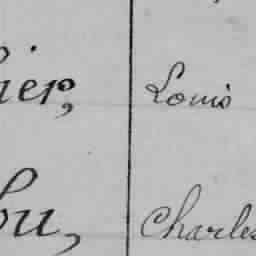 ier, Louis
ou, Charles